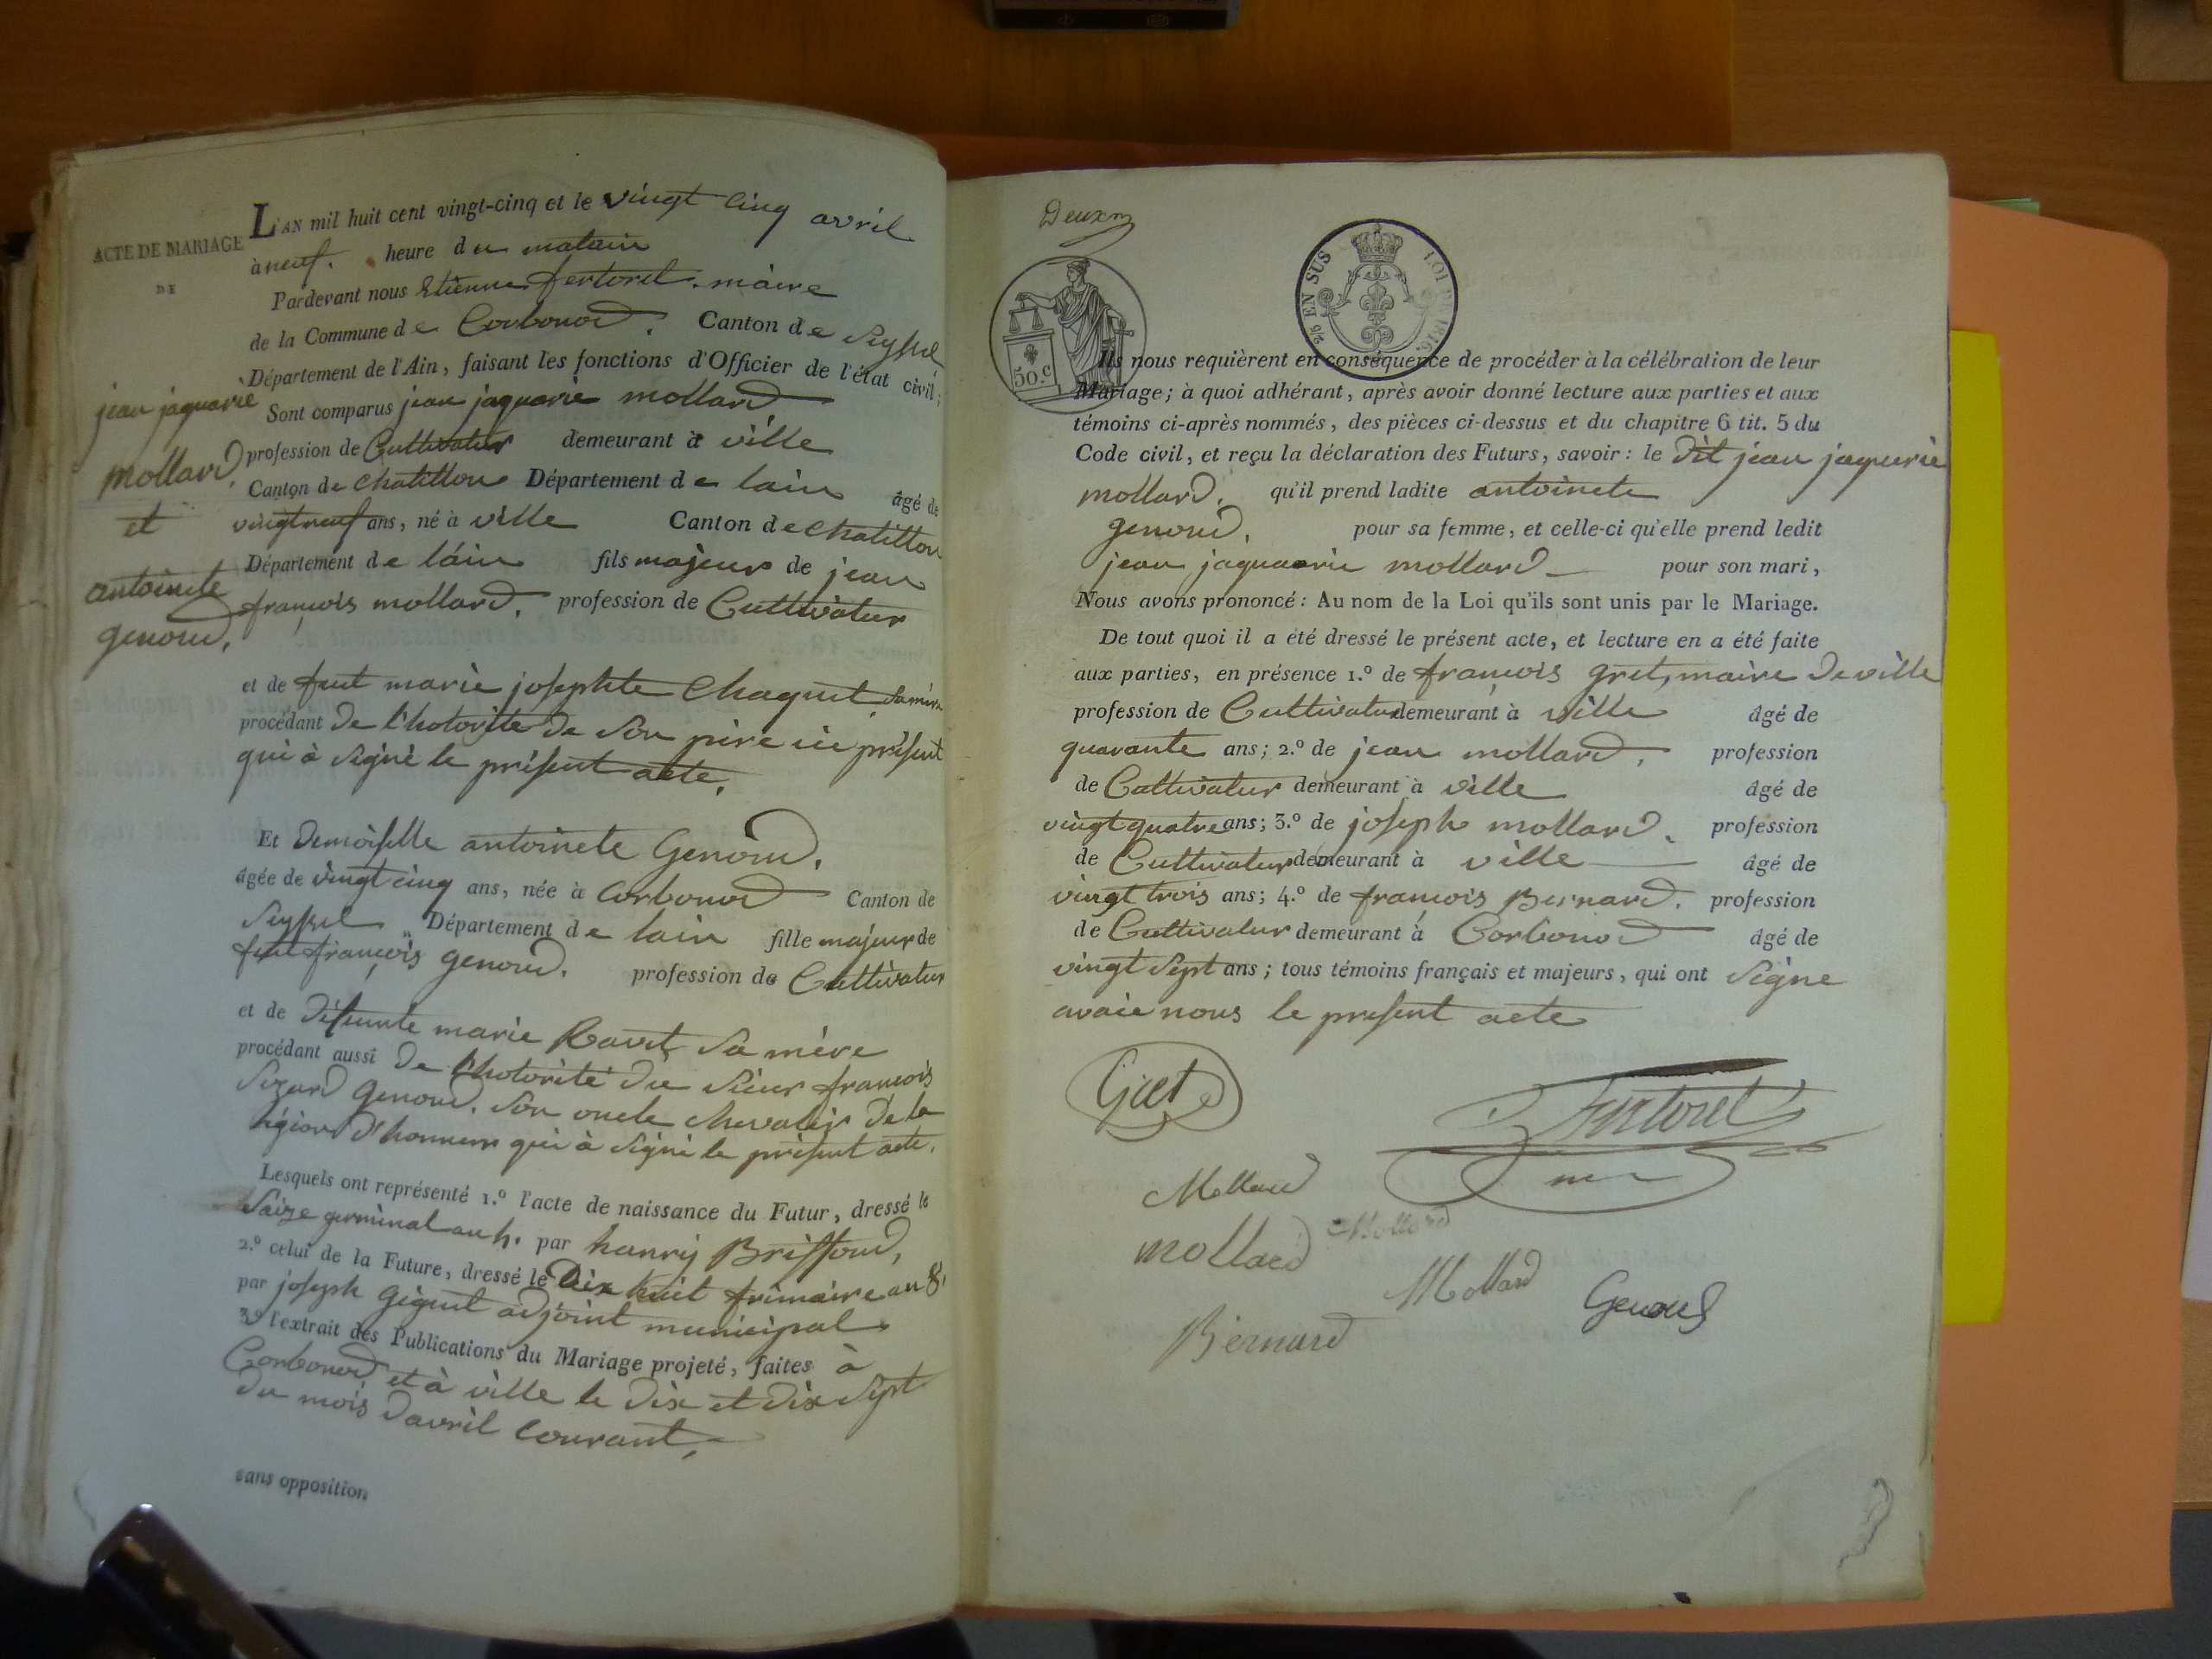 ACTE DE MARIAGE
DE
jean jaquarie
mollard.
et
antoinete
genoud.
L'AN mil huit cent vingt-cinq et le vingt cinq avril
à neuf. heure du matain
Pardevant nous Etienne fertoret. maire
de la Commune de Corbonod. Canton de Seyssel
Département de l'Ain, faisant les fonctions d'Officier de l'état civil;
Sont comparus jean jaquarie mollard
profession de Cultivatur demeurant à ville
Canton de chatillon Département de lain âgé de
vingtneuf ans, né à ville Canton de chatillon
Département de láin fils majeur de jean
françois mollard. profession de Cultivatur
et de feut marie josephte Chaquet sa mère
procédant de l'hotorite de son père ici présent
qui à signé le présent acte.
Et Demoiselle antoinete Genoud.
âgée de vingt cinq ans, née à Corbonod Canton de
Seyssel Département de lain fille majeur de
feut françois genoud. profession de Cultivatur
et de défeunte marie Ravet sa mère
procédant aussi de l'hotorité du sieur françois
genoud. son oncle chevalier de la
légion d'honneur qui à signé le présent acte.
Lesquels ont représenté 1.º l'acte de naissance du Futur, dressé le
saize germinal an 4. par hanriy Briffoud,
2.º celui de la Future, dressé le Dix huit frimaire an 8
par joseph gignet adjoint municipal
3.º l'extrait des Publications du Mariage projeté, faites à
Corbonod et à ville le dix et dix sept
du mois davril courant,
sans opposition
Deuxm
50.c
2/5 EN SUS LOI DE 1816.
Ils nous requièrent en conséquence de procéder à la célébration de leur
Mariage; à quoi adhérant, après avoir donné lecture aux parties et aux
témoins ci-après nommés, des pièces ci-dessus et du chapitre 6 tit. 5 du
Code civil, et reçu la déclaration des Futurs, savoir: le dit jean jaquerie
mollard. qu'il prend ladite antoinete
genoud. pour sa femme, et celle-ci qu'elle prend ledit
jean jaquarie mollard pour son mari,
Nous avons prononcé: Au nom de la Loi qu'ils sont unis par le Mariage.
De tout quoi il a été dressé le présent acte, et lecture en a été faite
aux parties, en présence 1.º de françois gret, maire de ville
profession de Cultivatur demeurant à ville âgé de
quarante ans; 2.º de jean mollard. profession
de Cultivatur demeurant à ville âgé de
vingt quatre ans; 3.º de joseph mollard. profession
de Cultivatur demeurant à ville âgé de
vingt trois ans; 4.º de françois Bernard. profession
de Cultivatur demeurant à Corbonod âgé de
vingt sept ans; tous témoins français et majeurs, qui ont signe
avaie nous le present acte
Gret
Fertoret
Mollard
Mollard
mollard
Mollard
Genoud
Bernard